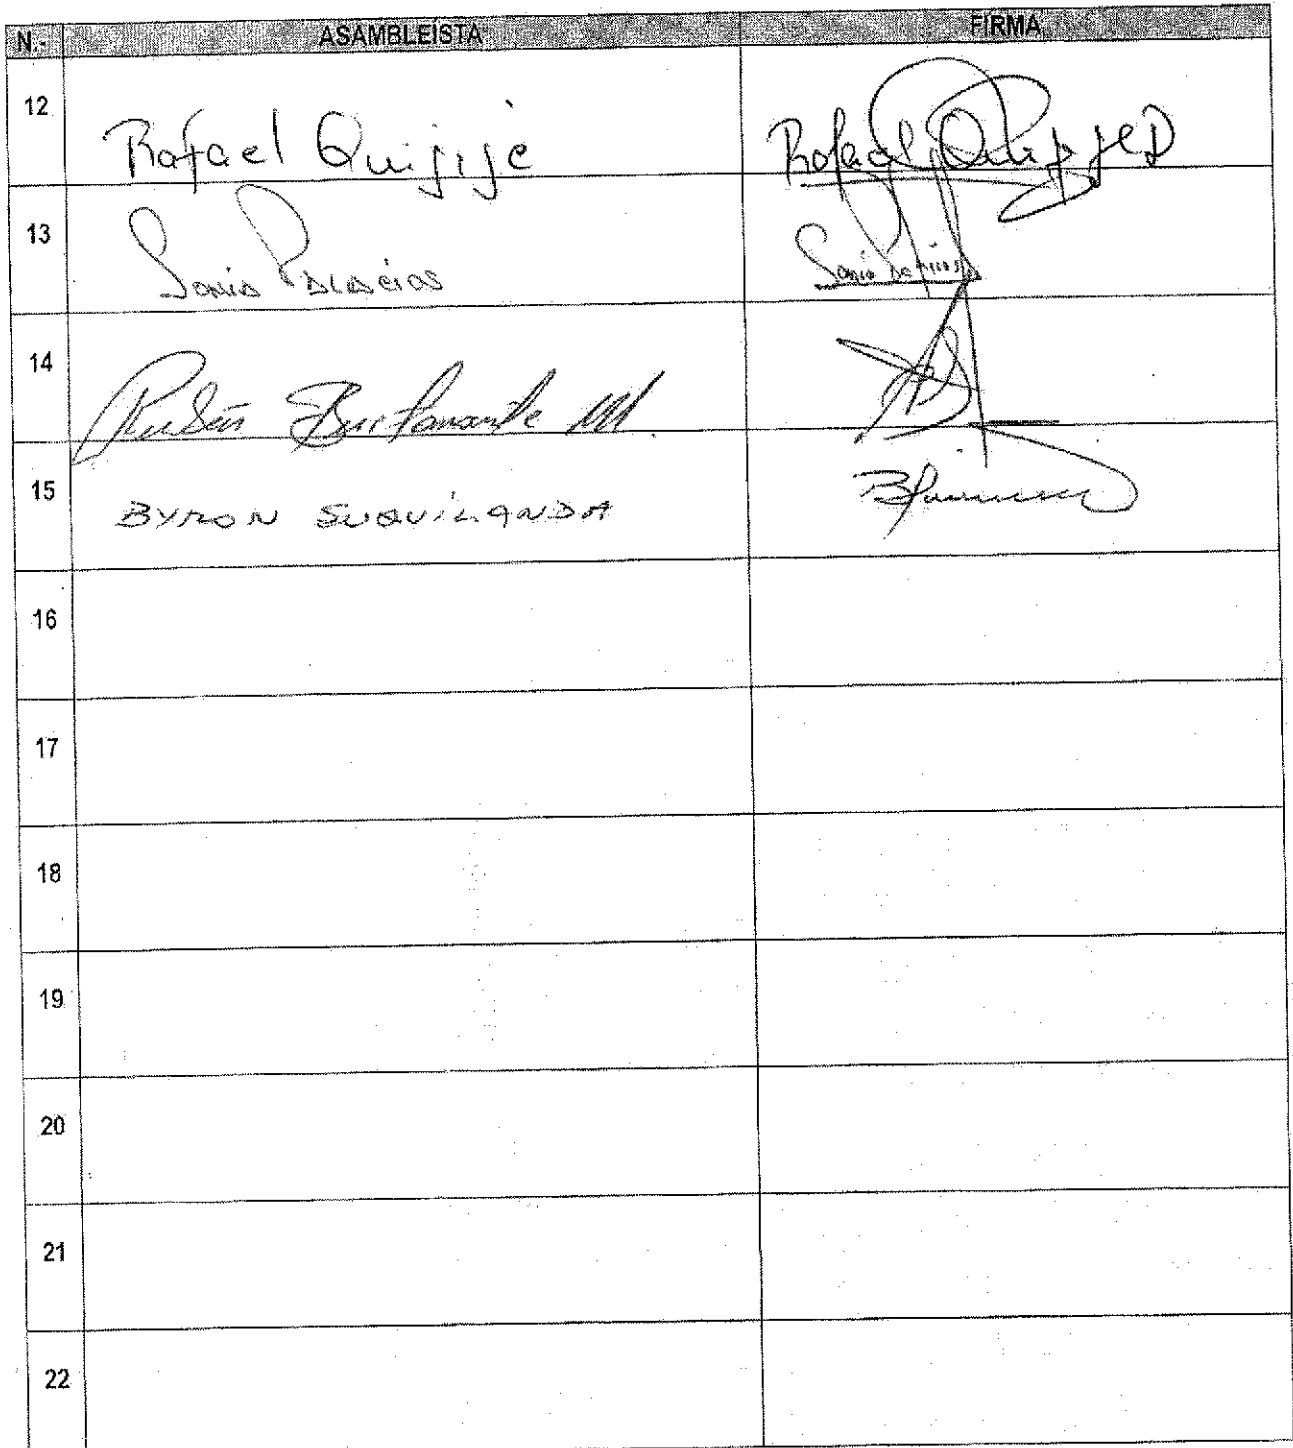 N.- ASAMBLEÍSTA FIRMA
12 Rafael Quijije Rafael Quijije D
13 Sonia Palacios Sonia Palacios
14 Rubén Bustamante M.
15 BYRON SUQUILANDA
16
17
18
19
20
21
22